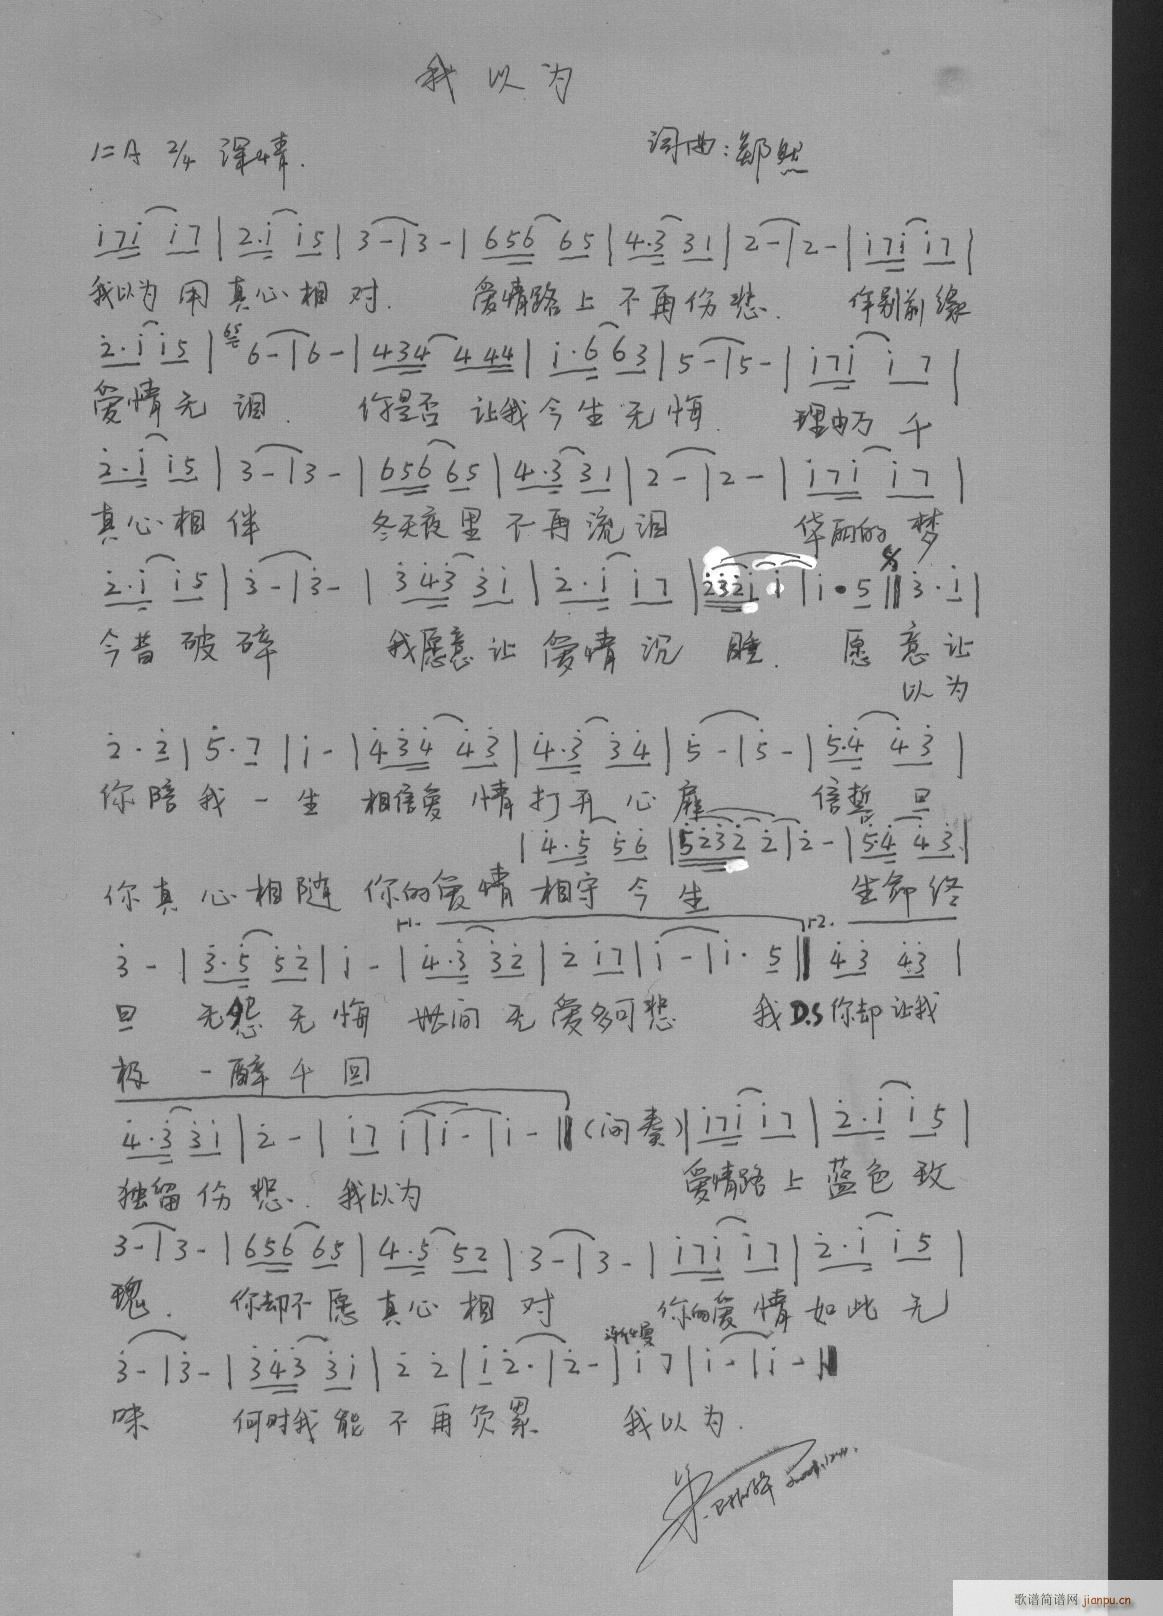 我以为
1=A 2/4 深情.
词曲:郑然
i7i i7 | 2.i i5 | 3 - | 3 - | 656 65 | 4.3 31 | 2 - | 2 - | i7i i7 |
我以为 用真心相对. 爱情路上不再伤悲. 作别前缘
2.i i5 | 65 6 - | 6 - | 434 444 | i.6 63 | 5 - | 5 - | i7i i7 |
爱情无泪. 你是否 让我今生无悔. 理由万千
2.i i5 | 3 - | 3 - | 656 65 | 4.3 31 | 2 - | 2 - | i7i i7 |
真心相伴 冬天夜里不再流泪 华丽的梦
2.i i5 | 3 - | 3 - | 343 3i | 2.i i7 | 232i i | i . 5 || 3.i |
今昔破碎 我愿意让爱情沉睡. 愿意让
以为
2.2 | 5.7 | i - | 434 43 | 4.3 34 | 5 - | 5 - | 5.4 43 |
你陪我一生 相信爱情打开心扉 信誓旦
| 4.5 56 | 5232 2 | 2 - | 5.4 43 |
你真心相随 你的爱情相守今生 生命终
1. 2.
3 - | 3.5 52 | i - | 4.3 32 | 2 i7 | i - | i . 5 || 43 43 |
旦 无怨无悔 世间无爱多可悲 我 D.S 你却让我
极 一醉千回
4.3 3i | 2 - | i7 i | i - | i - || (间奏) | i7i i7 | 2.i i5 |
独留伤悲. 我以为 爱情路上蓝色玫
3 - | 3 - | 656 65 | 4.5 52 | 3 - | 3 - | i7i i7 | 2.i i5 |
瑰. 你却不愿真心相对 你的爱情如此无
渐慢
3 - | 3 - | 343 3i | 2 2 | i 2. | 2 - | i 7 | i - | i - ||
味 何时我能不再负累 我以为.
歌谱简谱网 jianpu.cn